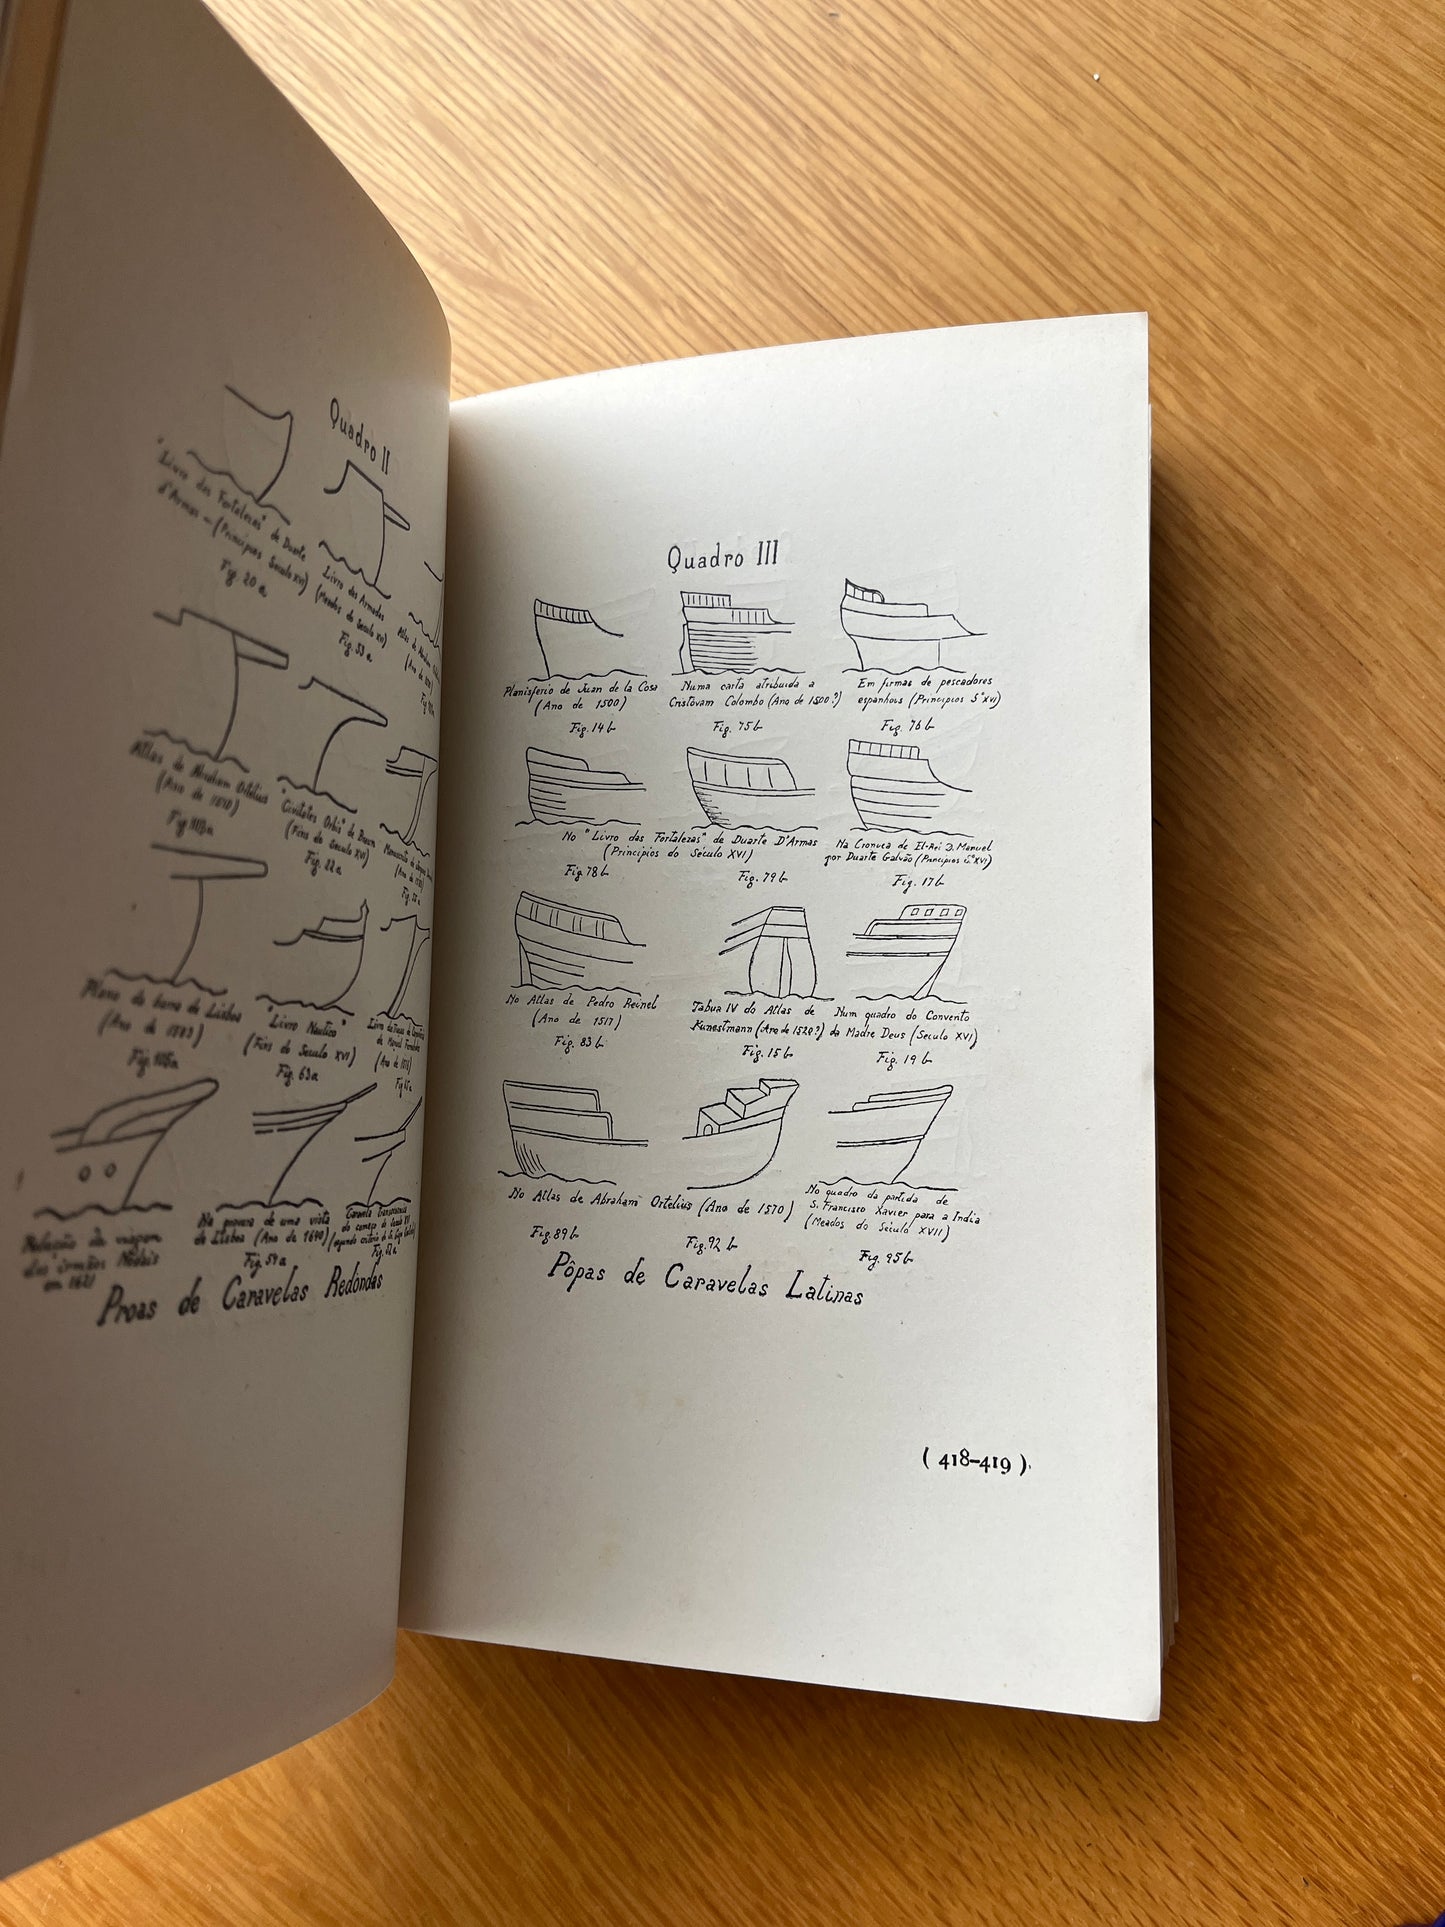 Quadro II
"Livro das Fortalezas" de Duarte
d'Armas — (Principios Seculo XVI)
Fig. 20 a
Livro das Armadas
(Meados do Seculo XVI)
Fig. 53 a
Atlas de Abraham Ortelius
(Ano de 1570)
"Civitates Orbis" de Braun
(Fins do Seculo XVI)
Fig. 22 a
Plano da barra de Lisboa
"Livro Nautico"
(Fins do Seculo XVI)
Fig. 63 a
Relação da viagem
dos irmãos Nodais
em 1621
Na gravura de uma vista
de Lisboa (Ano de 1640)
Fig. 54 a
Proas de Caravelas Redondas
Quadro III
Planisferio de Juan de la Cosa
(Ano de 1500)
Fig. 14 b
Numa carta atribuida a
Cristóvam Colombo (Ano de 1500?)
Fig. 75 b
Em firmas de pescadores
espanhois (Principios S.º XVI)
Fig. 76 b
No "Livro das Fortalezas" de Duarte D'Armas
(Principios do Século XVI)
Fig. 78 b
Fig. 79 b
Na Cronica de El-Rei D. Manuel
por Duarte Galvão (Principios S.º XVI)
Fig. 17 b
No Atlas de Pedro Reinel
(Ano de 1517)
Fig. 83 b
Tabua IV do Atlas de
Kunestmann (Ano de 1520?)
Fig. 15 b
Num quadro do Convento
da Madre Deus (Seculo XVI)
Fig. 19 b
No Atlas de Abraham Ortelius (Ano de 1570)
Fig. 89 b
Fig. 92 b
No quadro da partida de
S. Francisco Xavier para a India
(Meados do Século XVII)
Fig. 95 b
Pôpas de Caravelas Latinas
( 418-419 )